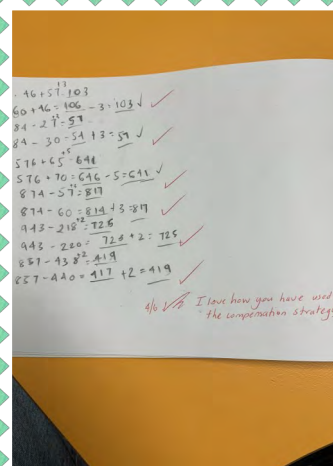 46+57=103
60+46=106-3=103 ✓
84-27=57
84-30=54+3=57 ✓
576+65=641
576+70=646-5=641 ✓
874-57=817
874-60=814+3=817
943-218=725
943-220=723+2=725
857-438=419
857-440=417+2=419
I love how you have used
the compensation strateg